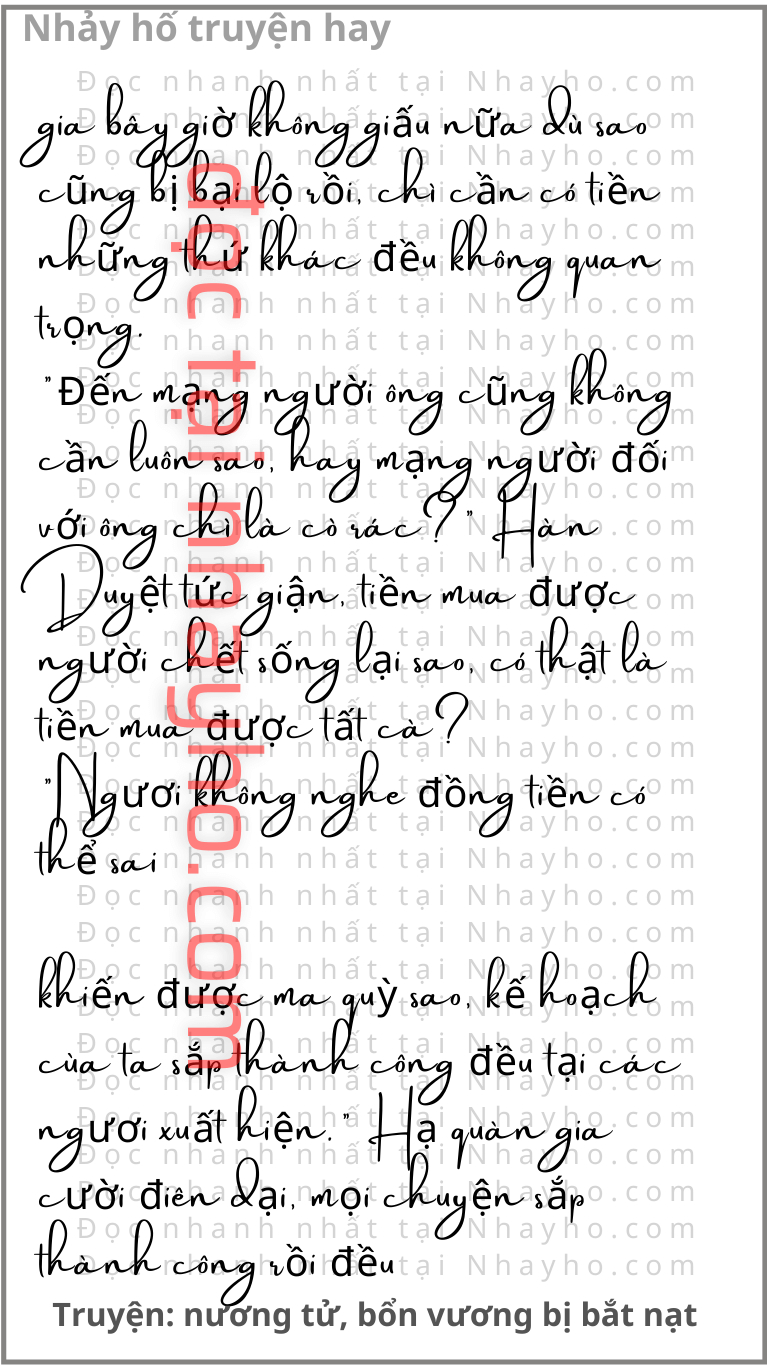 Nhảy hố truyện hay
gia bây giờ không giấu nữa dù sao
cũng bị bại lộ rồi, chỉ cần có tiền
những thứ khác đều không quan
trọng.
"Đến mạng người ông cũng không
cần luôn sao, hay mạng người đối
với ông chỉ là cỏ rác?" Hàn
Duyệt tức giận, tiền mua được
người chết sống lại sao, có thật là
tiền mua được tất cả?
"Ngươi không nghe đồng tiền có
thể sai
khiến được ma quỷ sao, kế hoạch
của ta sắp thành công đều tại các
ngươi xuất hiện." Hạ quản gia
cười điên dại, mọi chuyện sắp
thành công rồi đều
Truyện: nương tử, bổn vương bị bắt nạt
đọc tại nhayho.com
Đọc nhanh nhất tại Nhayho.com